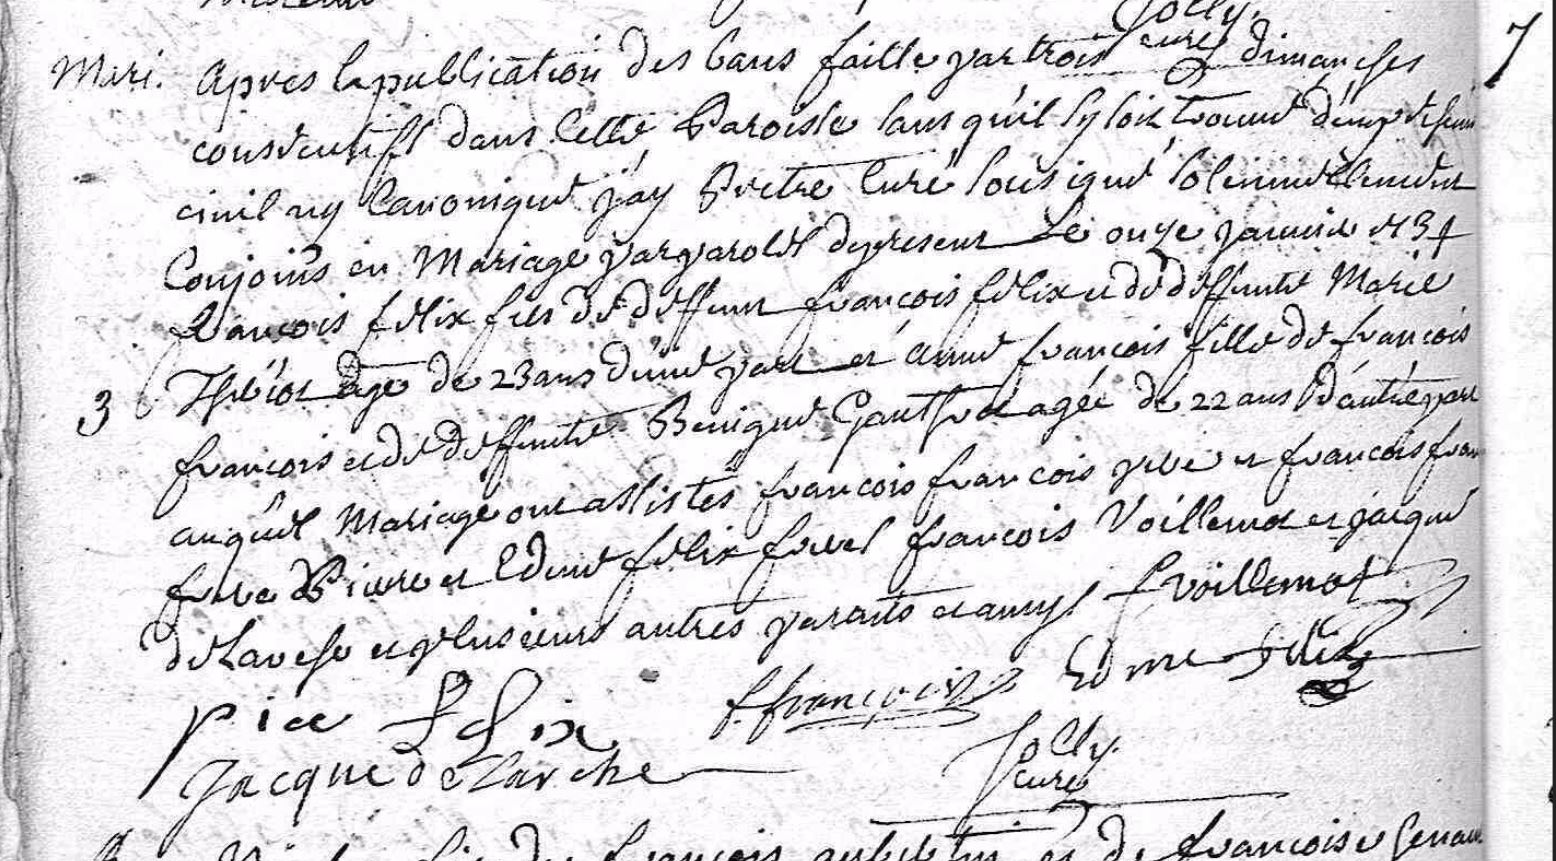 Jolly
curé
7
Mari. Apres la publication des bans faitte par trois dimanches
consecutifs dans cette Paroisse sans qu'il sy soit trouvé d'empeschem
civil ny Canonique j'ay Pretre Curé sousigné solennellement
Conjoins en Mariage par paroles de present Le onze janvier 1734
francois felix fils de deffunt francois felix et de deffunte Marie
3 agé de 23 ans d'une part et anne francois fille de francois
francois et de deffunte Benigne Gautherot agée de 22 ans D'autre part
auquel Mariage ont assistes francois francois pere et francois fran
frere Pierre et Edme felix freres francois Voillemot et jacque
de Larche et plusieurs autres parants et amys f voillemot
piere felix f. francois Edme felix
Jacque de Larche Jolly
curé
francois et de francoise